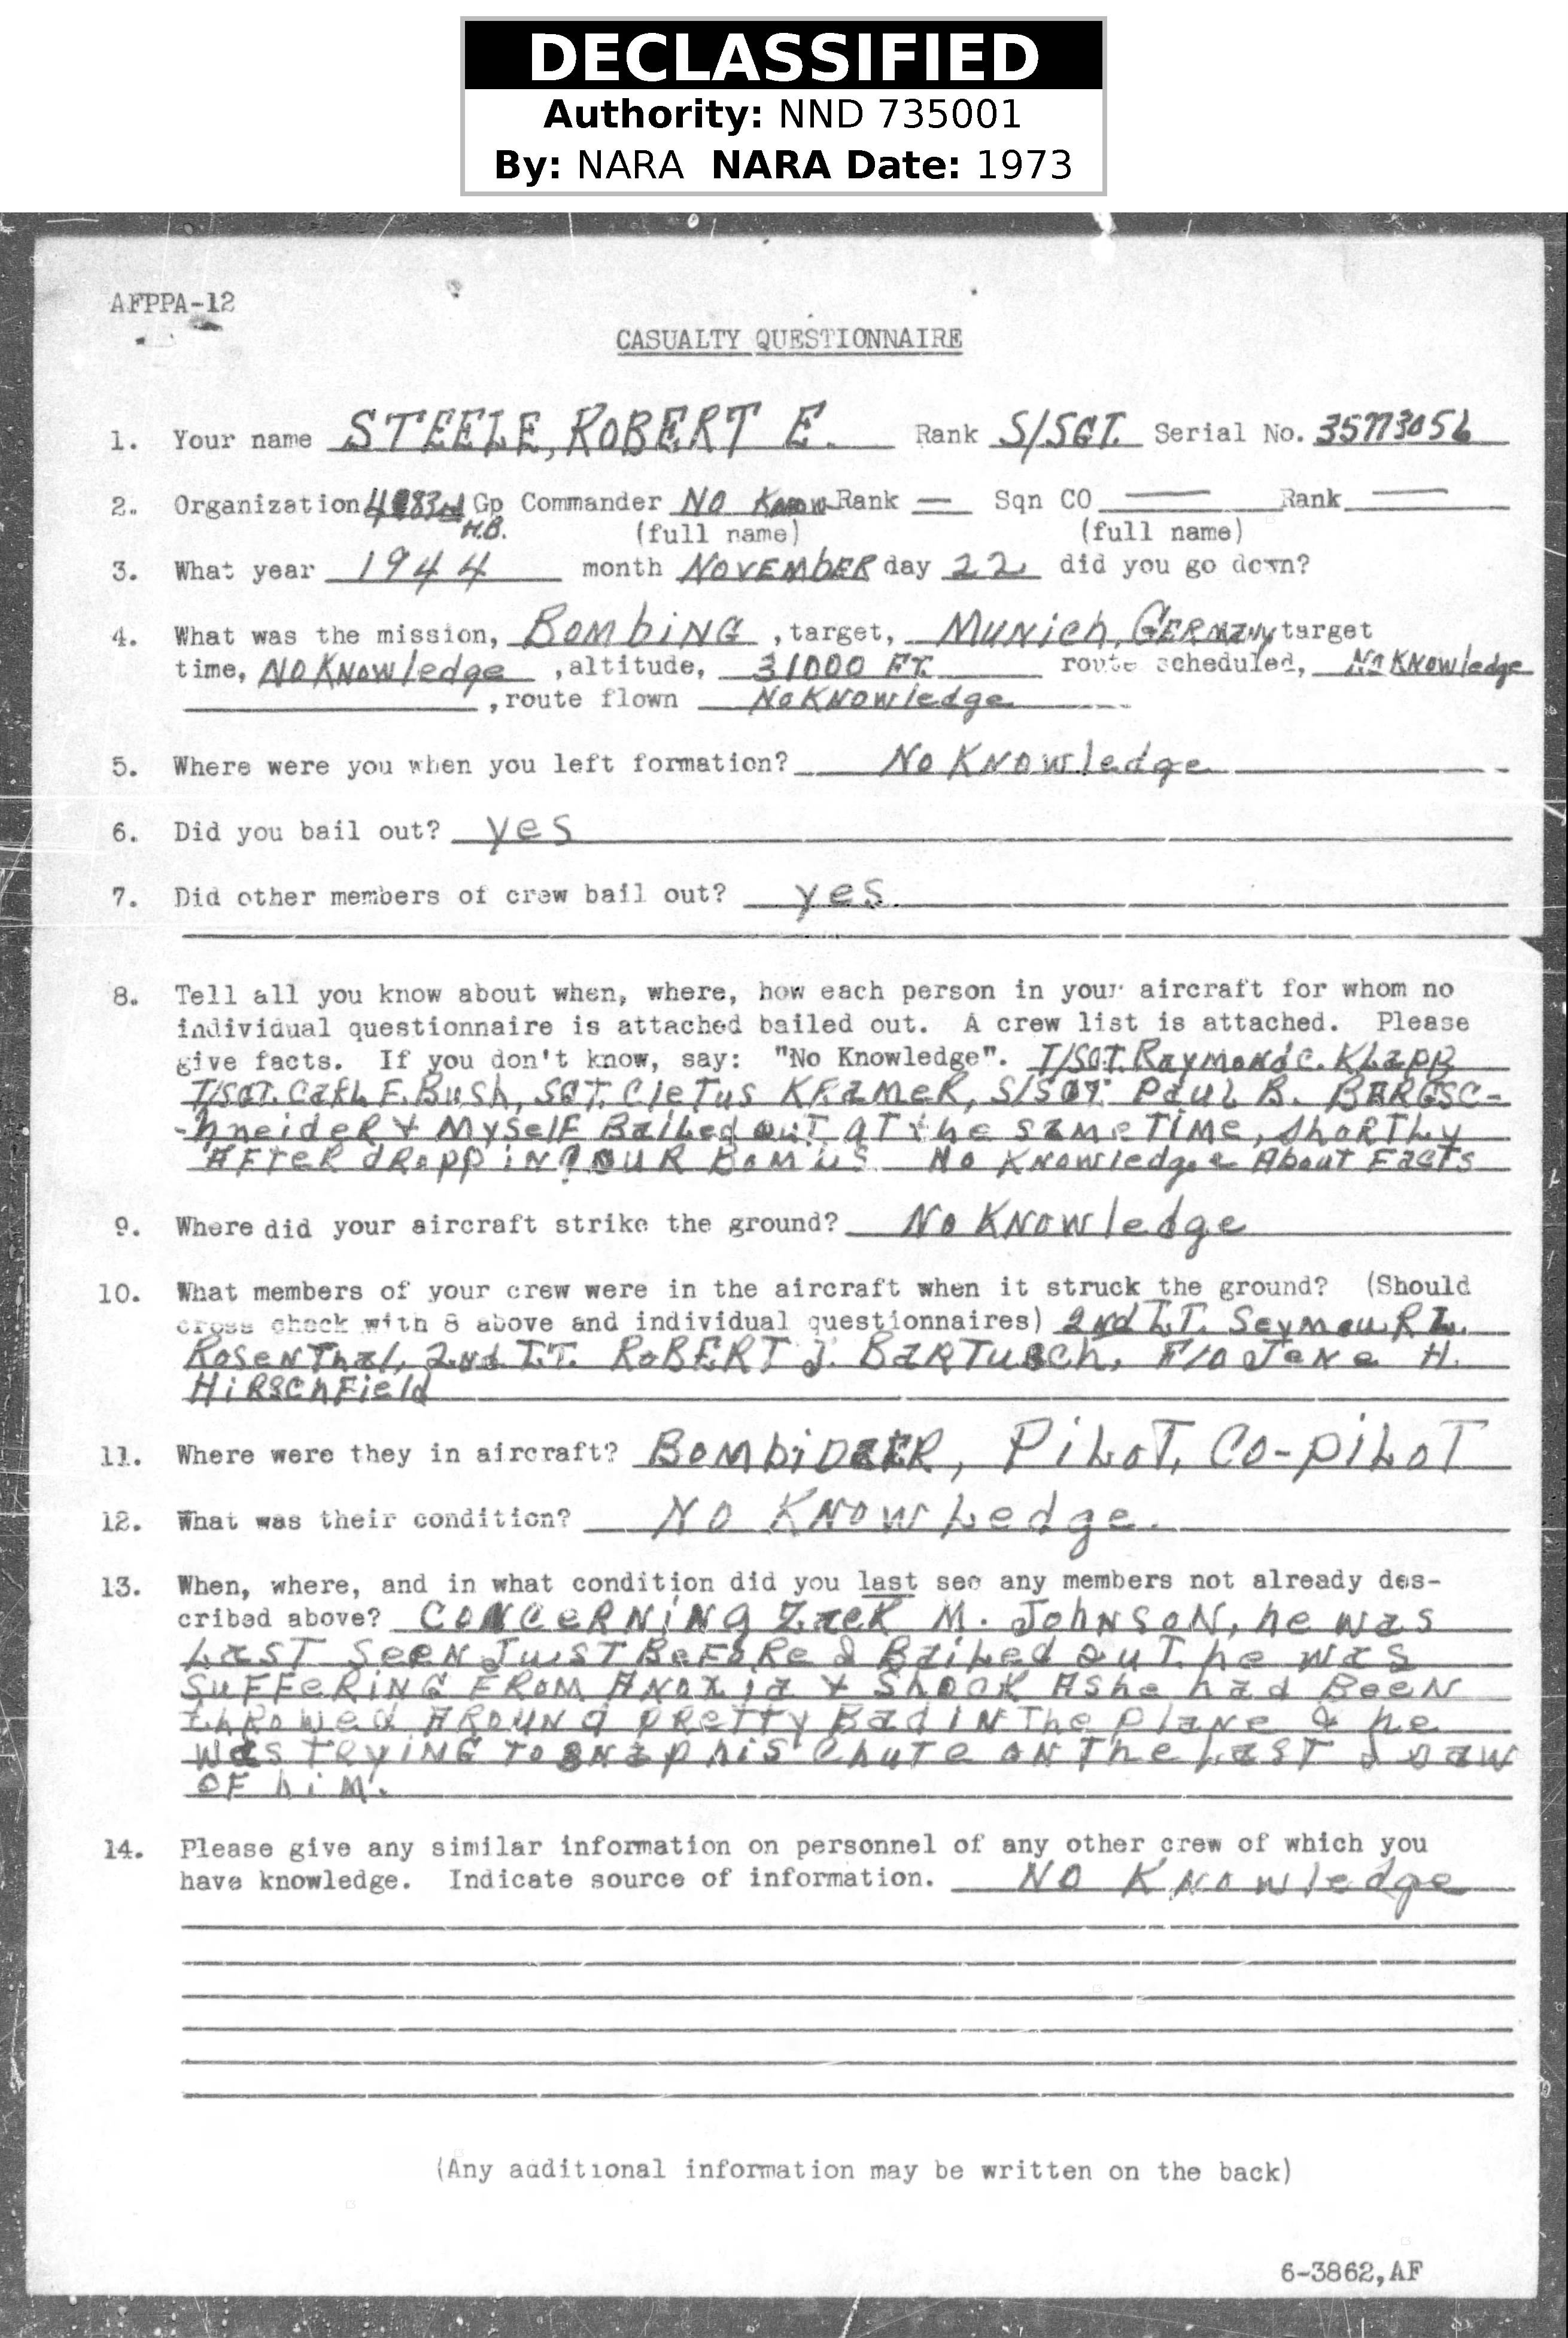 DECLASSIFIED
Authority: NND 735001
By: NARA NARA Date: 1973
AFPPA-12
CASUALTY QUESTIONNAIRE
1. Your name STEELE, ROBERT E. Rank S/SGT. Serial No. 35773056
2. Organization 483rd Gp Commander NO Know Rank — Sqn CO Rank
H.B. (full name) (full name)
3. What year 1944 month NOVEMBER day 22 did you go down?
4. What was the mission, BOMbiNG , target, MUNich, GERMANy target
time, NO KNOwledge , altitude, 31000 FT. route scheduled, No KNOwledge
, route flown No KNOwledge
5. Where were you when you left formation? No KNOwledge
6. Did you bail out? yes
7. Did other members of crew bail out? yes.
8. Tell all you know about when, where, how each person in your aircraft for whom no
individual questionnaire is attached bailed out. A crew list is attached. Please
give facts. If you don't know, say: "No Knowledge". T/SGT. Raymond C. Klapp
T/SGT. Carl F. Bush, SGT. CleTus KRAMER, S/SGT. Paul B. BARGSC-
-hneideR & MyselF BaiLed ouT aT the sameTiMe, shoRTLy
AFTeR dRoppiNg ouR BoMbs No KNowledge About FacTs
9. Where did your aircraft strike the ground? No KNOwledge
10. What members of your crew were in the aircraft when it struck the ground? (Should
cross check with 8 above and individual questionnaires) 2nd LT. SeymouR L.
RosenThal, 2nd LT. RoBERT J. BaRTusch, F/O Jene H.
HiRschField
11. Where were they in aircraft? BombiDeER, PiLoT, Co-piLoT
12. What was their condition? NO KNOwLedge.
13. When, where, and in what condition did you last see any members not already des-
cribed above? CoNceRNiNg Zack M. JohNsoN, he was
LasT seeN JusT BeFoRe I BaiLed ouT. he was
SuFFeRiNG FRoM ANoxia & Shock As he had BeeN
thRowed ARouNd pReTTy Bad iN The plaNe & he
was TRyiNG To sNap his chuTe oN The LasT I saw
oF hiM.
14. Please give any similar information on personnel of any other crew of which you
have knowledge. Indicate source of information. NO KNOwledge
(Any additional information may be written on the back)
6-3862,AF